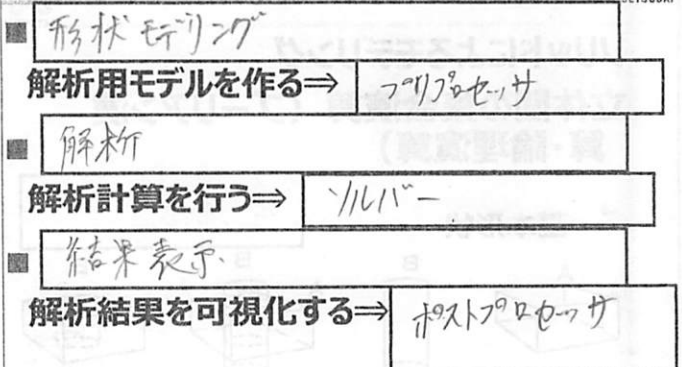 ■ 形状モデリング
解析用モデルを作る⇒ プリプロセッサ
■ 解析
解析計算を行う⇒ ソルバー
■ 結果表示
解析結果を可視化する⇒ ポストプロセッサ